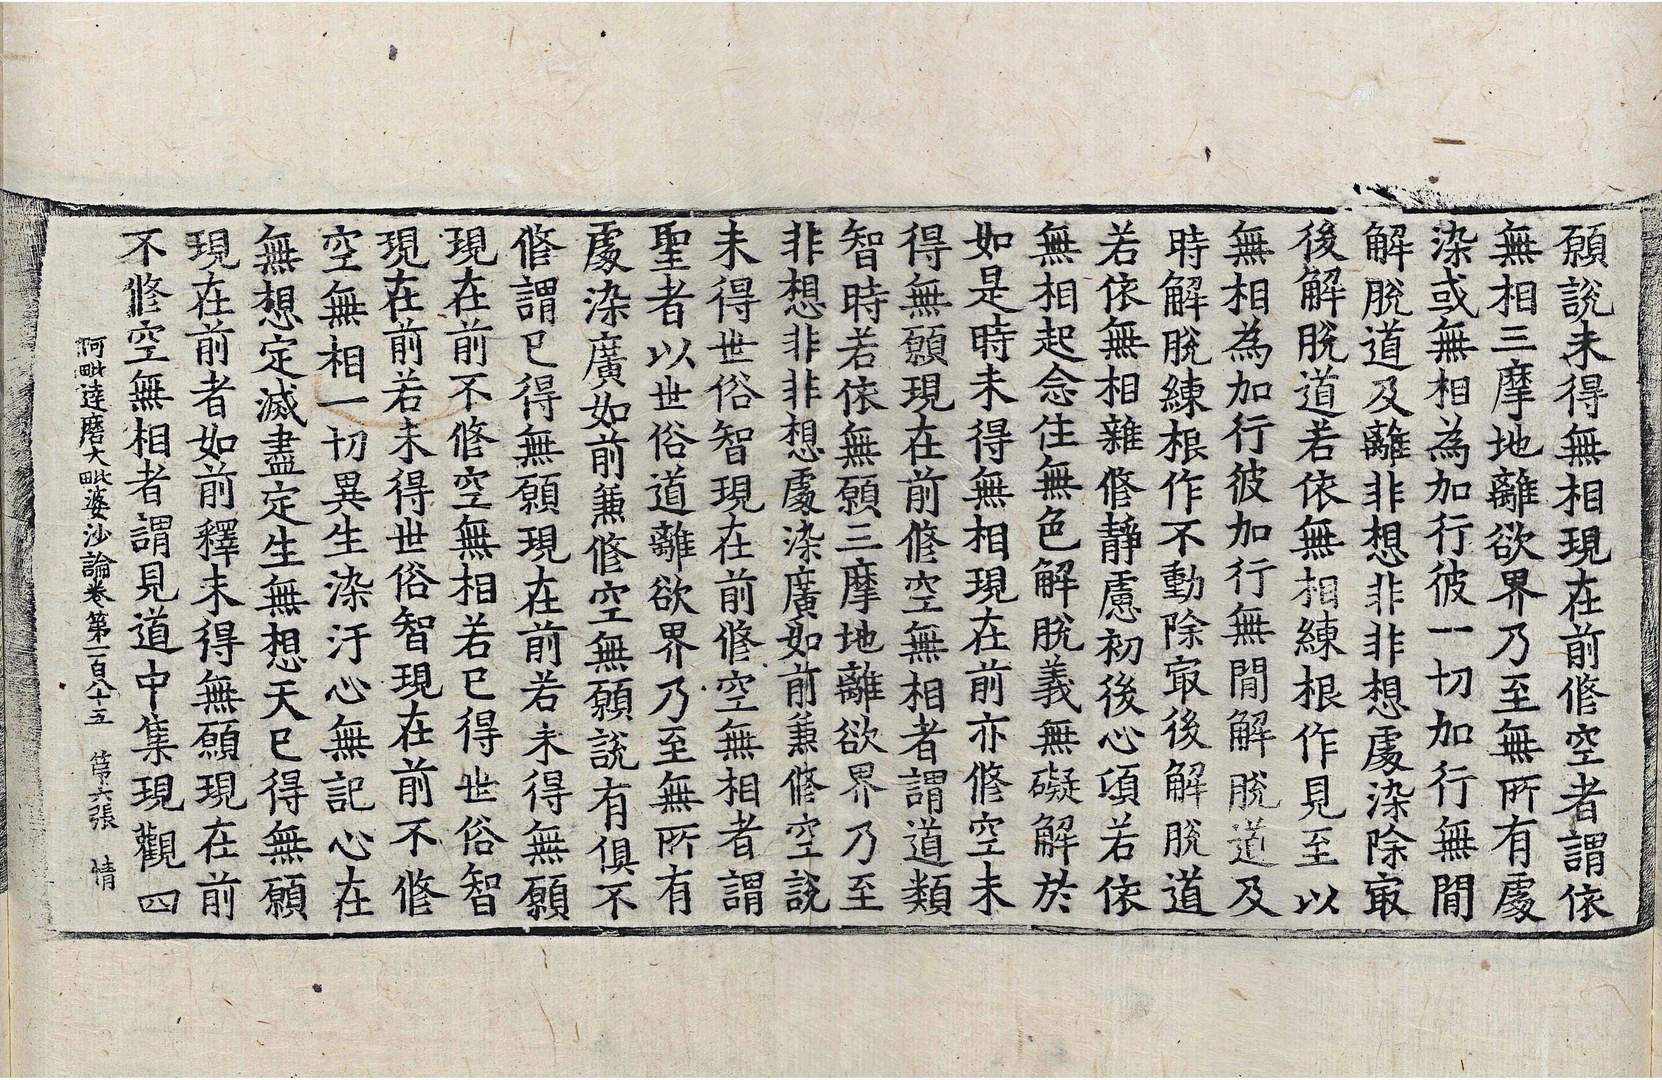 願說未得無相現在前修空者謂依
無相三摩地離欲界乃至無所有處
染或無相為加行彼一切加行無閒
解脫道及離非想非非想處染除冣
後解脫道若依無相練根作見至以
無相為加行彼加行無閒解脫道及
時解脫練根作不動除冣後解脫道
若依無相雜修靜慮初後心頃若依
無相起念住無色解脫義無礙解於
如是時未得無相現在前亦修空未
得無願現在前修空無相者謂道類
智時若依無願三摩地離欲界乃至
非想非非想處染廣如前兼修空說
未得世俗智現在前修空無相者謂
聖者以世俗道離欲界乃至無所有
處染廣如前兼修空無願說有俱不
修謂已得無願現在前若未得無願
現在前不修空無相若已得世俗智
現在前若未得世俗智現在前不修
空無相一切異生染汙心無記心在
無想定滅盡定生無想天已得無願
現在前者如前釋未得無願現在前
不修空無相者謂見道中集現觀四
阿毗達磨大毗婆沙論卷第一百八十五 第六張 情